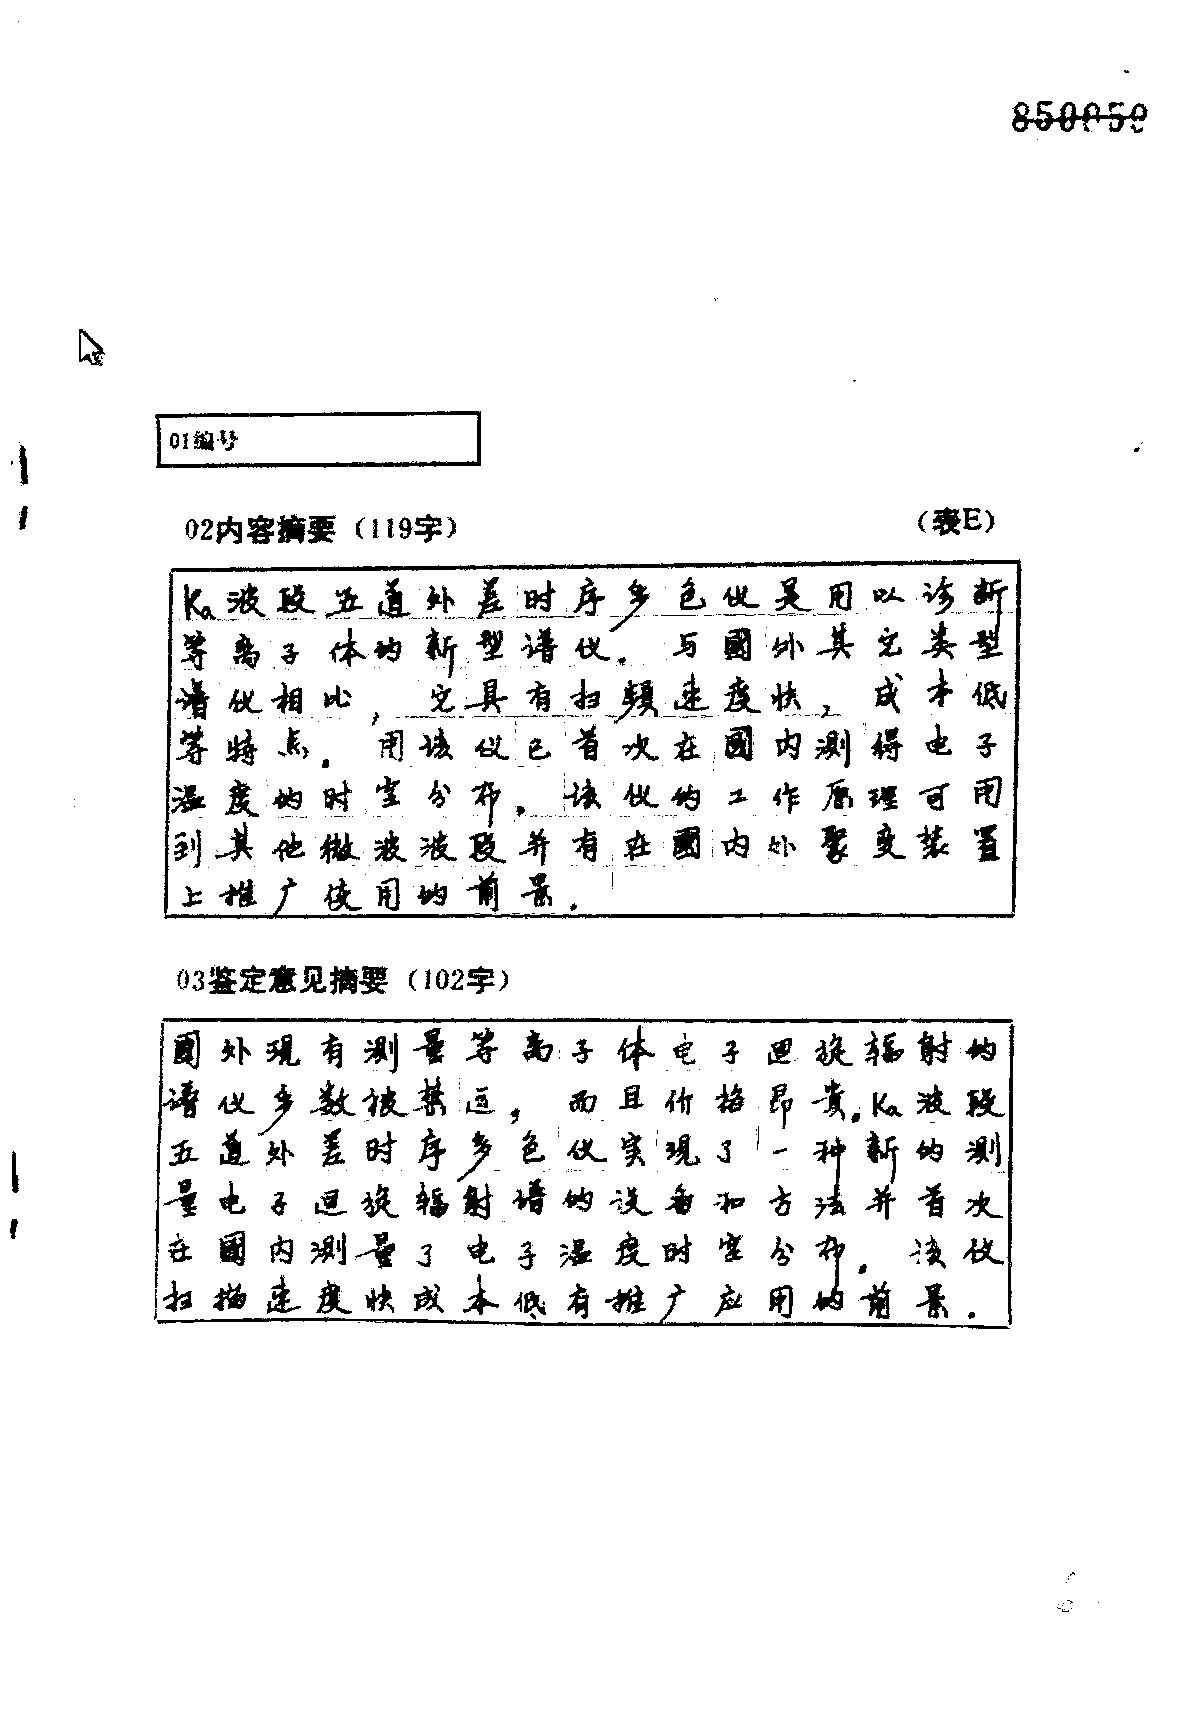 850050
01编号
02内容摘要（119字）
（表E）
Ka波段五道外差时序多色仪是用以诊断
等离子体的新型谱仪。与國外其它类型
谱仪相比，它具有扫频速度快，成本低
等特点。用该仪已首次在國内测得电子
温度的时空分布。该仪的工作原理可用
到其他微波波段并有在國内外聚变装置
上推广使用的前景。
03鉴定意见摘要（102字）
國外现有测量等离子体电子迴旋辐射的
谱仪多数被禁运，而且价格昂贵。Ka波段
五道外差时序多色仪实现了一种新的测
量电子迴旋辐射谱的设备和方法并首次
在國内测量了电子温度时空分布。该仪
扫描速度快成本低有推广应用的前景。